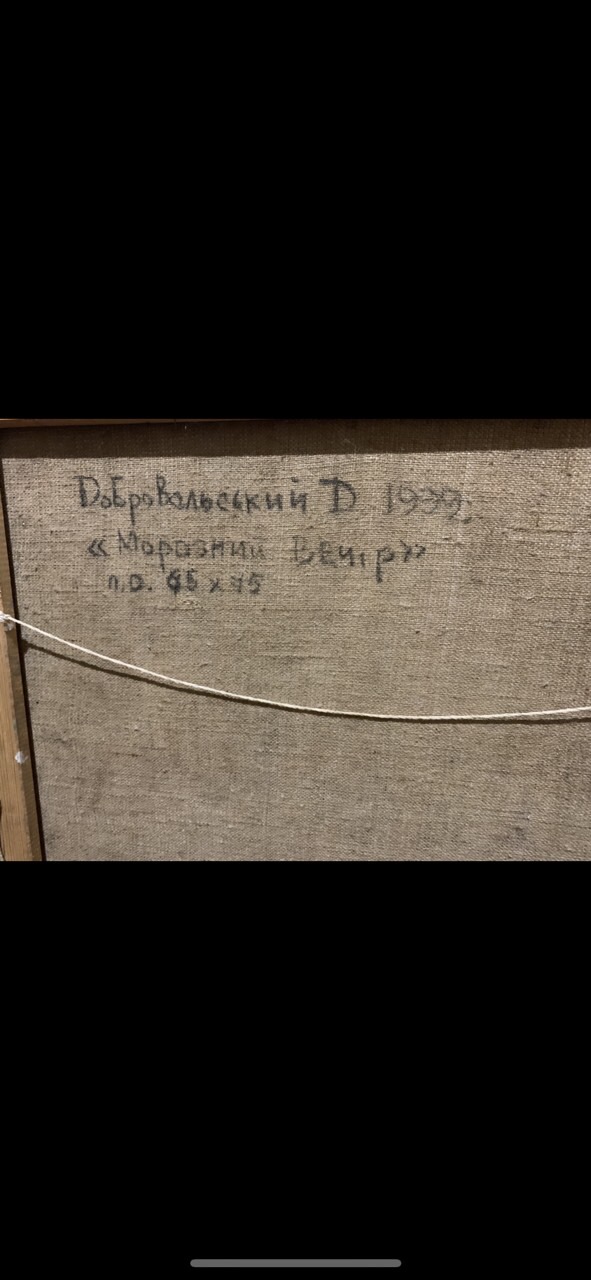 Добровольський Д 1999.
«Морозний Вечір»
п.о. 65 х 75